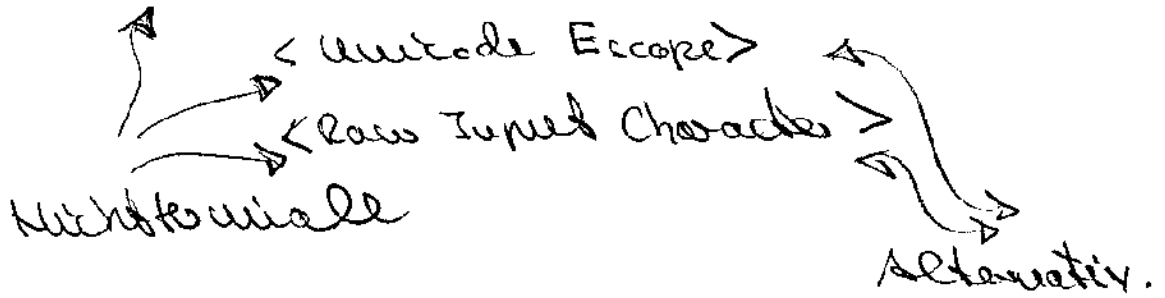 <Unicode Escape>
<Raw Input Character>
Nichtterminale
Alternativ.